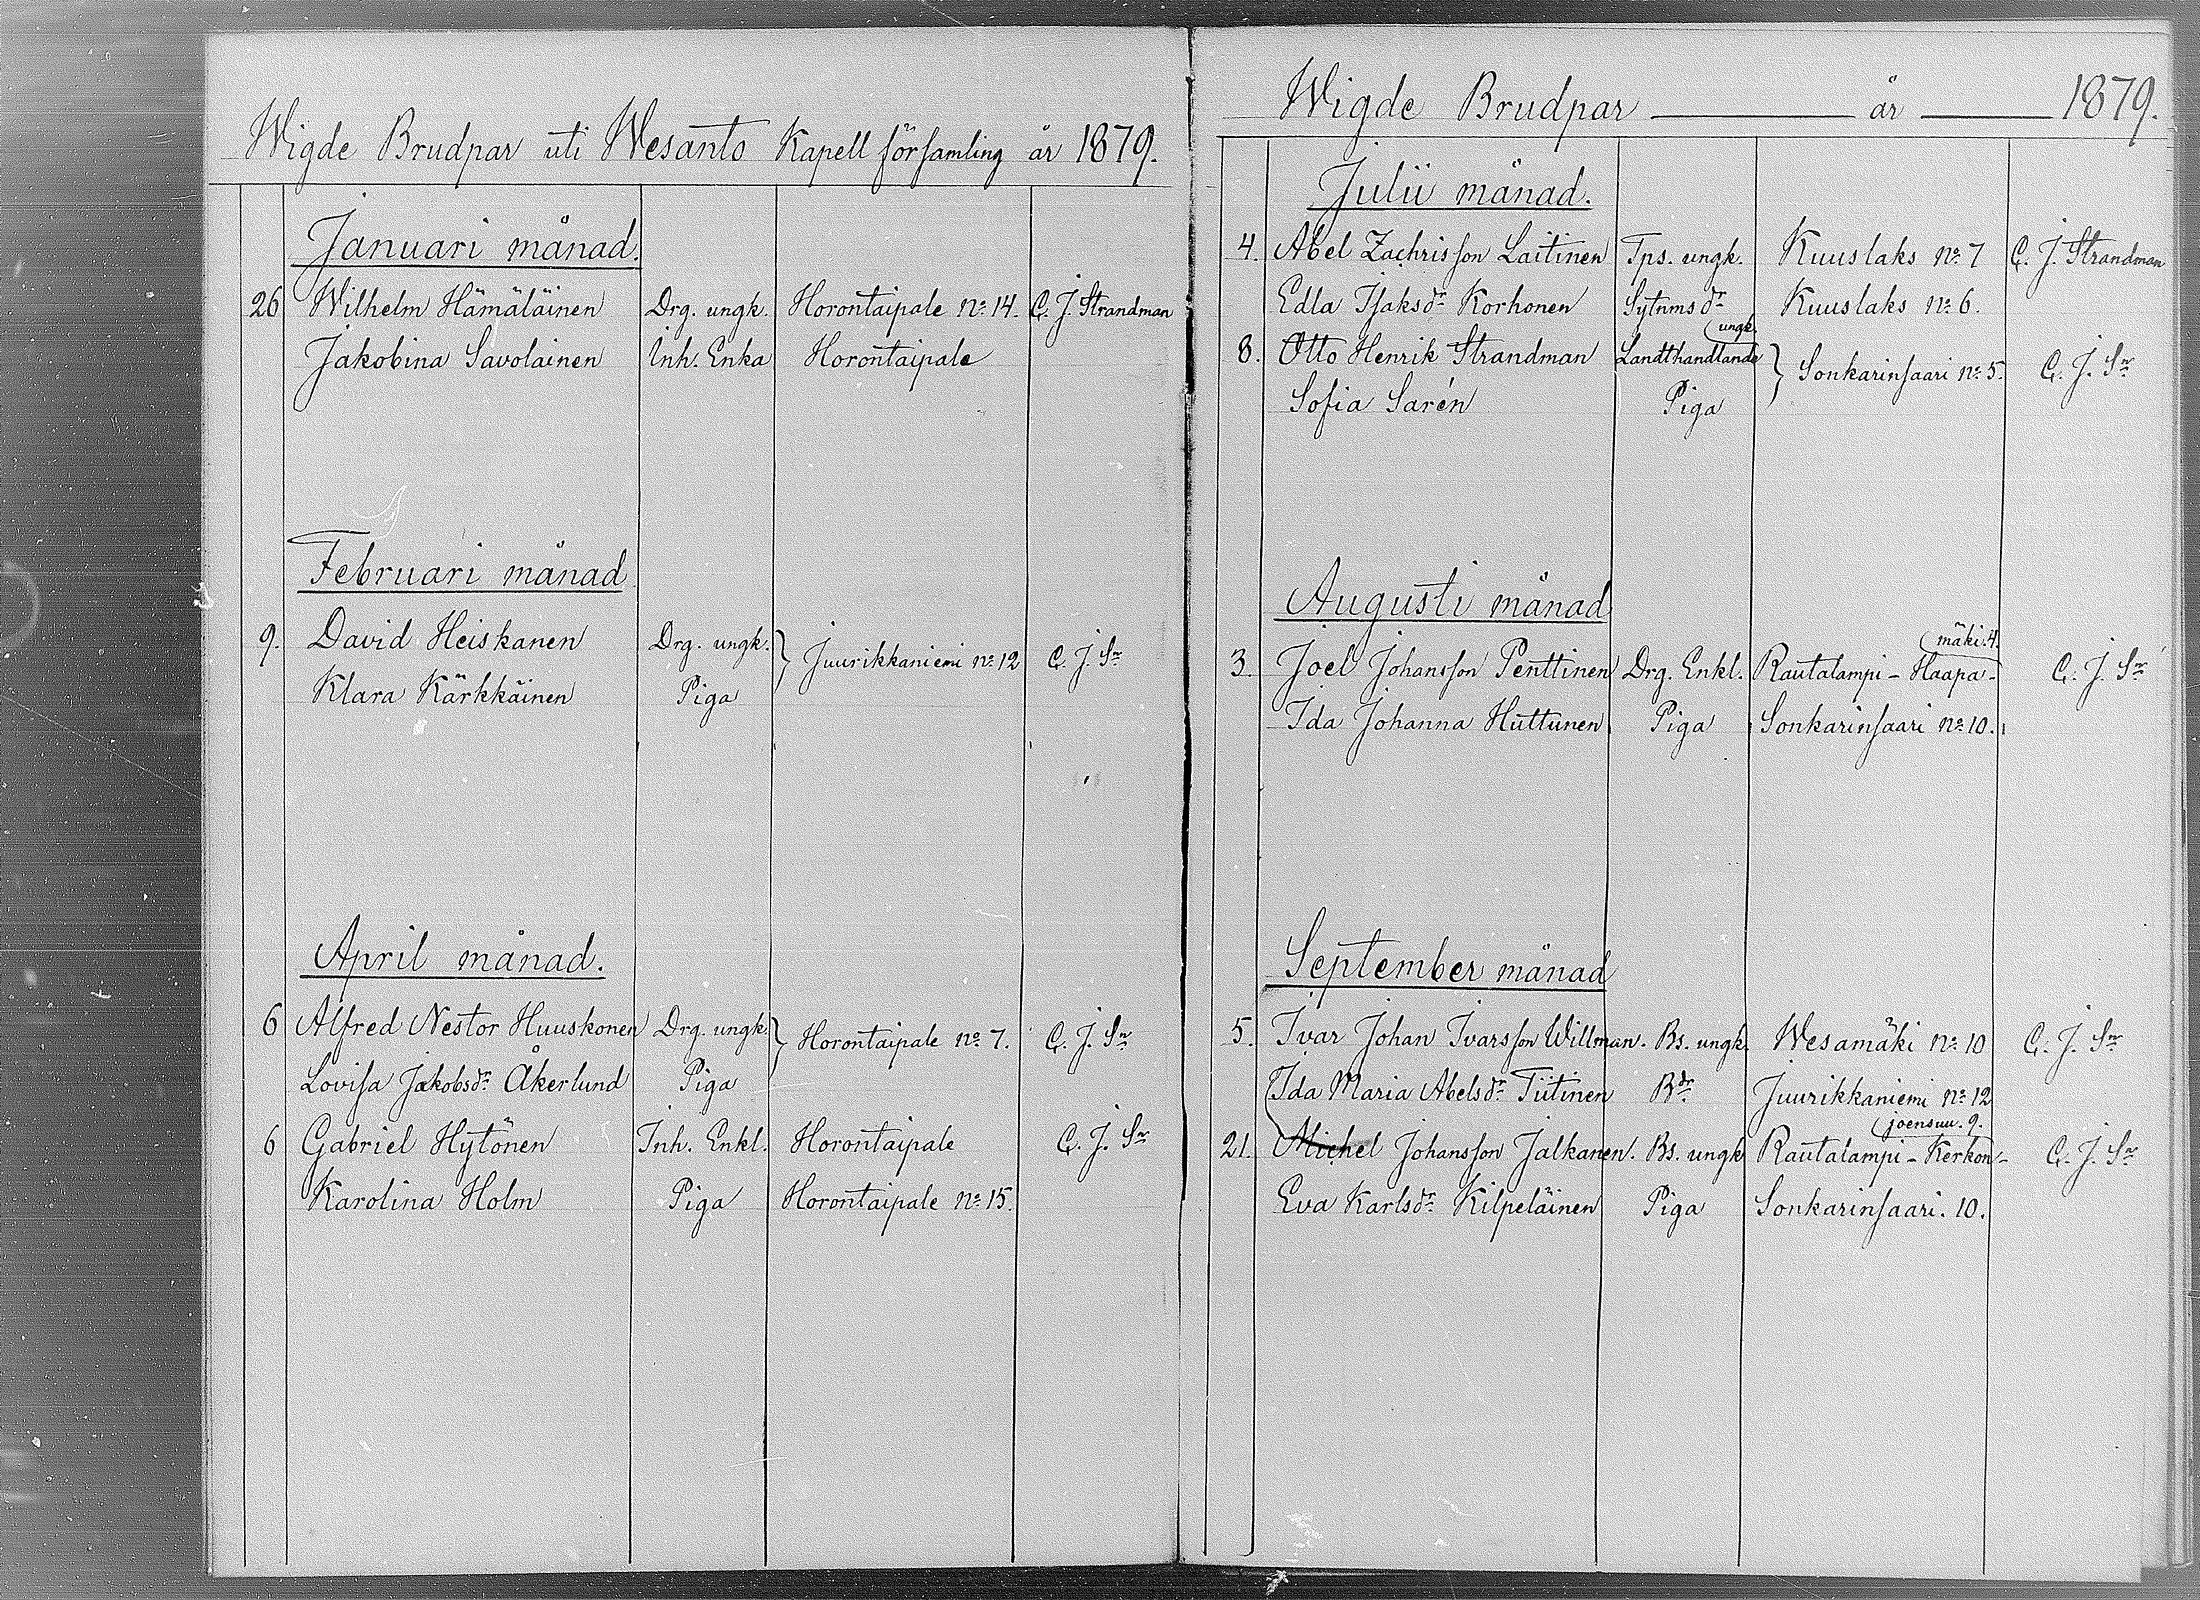 Wigde Brudpar uti Wesanto Kapell församling år 1879.
Januari månad.
26 Wilhelm Hämäläinen Drg. ungk. Horontaipale No 14. C. J. Strandman
Jakobina Savolainen Inh. Enka Horontaipale
Februari månad
9. David Heiskanen Drg. ungk. } Juurikkaniemi No 12 C. J. Sn
Klara Kärkkäinen Piga
April månad.
6 Alfred Nestor Huuskonen Drg. ungk. } Horontaipale No 7. C. J. Sn
Lovisa Jakobsdr Åkerlund Piga
6 Gabriel Hytönen Inh. Enkl. Horontaipale C. J. Sn
Karolina Holm Piga Horontaipale No 15.
Wigde Brudpar år 1879.
Julii månad.
4. Abel Zachrisson Laitinen Tps. ungk. Kuuslaks No 7 C. J. Strandman
Edla Isaksdr Korhonen Sytnmsdr Kuuslaks No 6.
ungk.
8. Otto Henrik Strandman Landthandlande } Sonkarinsaari No 5. C. J. Sn
Sofia Sarén Piga
Augusti månad
mäki. 4.
3. Joel Johansson Penttinen Drg. Enkl. Rautalampi - Haapa- C. J. Sn
Ida Johanna Huttunen Piga Sonkarinsaari No 10.
September månad
5. Ivar Johan Ivarsson Willman. Bs. ungk. Wesamäki No 10 C. J. Sn
Ida Maria Abelsdr Tiitinen Bdr Juurikkaniemi No 12
joensuu. 9.
21. Michel Johansson Jalkanen. Bs. ungk Rautalampi - Kerkon- C. J. Sn
Eva Karlsdr Kilpeläinen Piga Sonkarinsaari. 10.